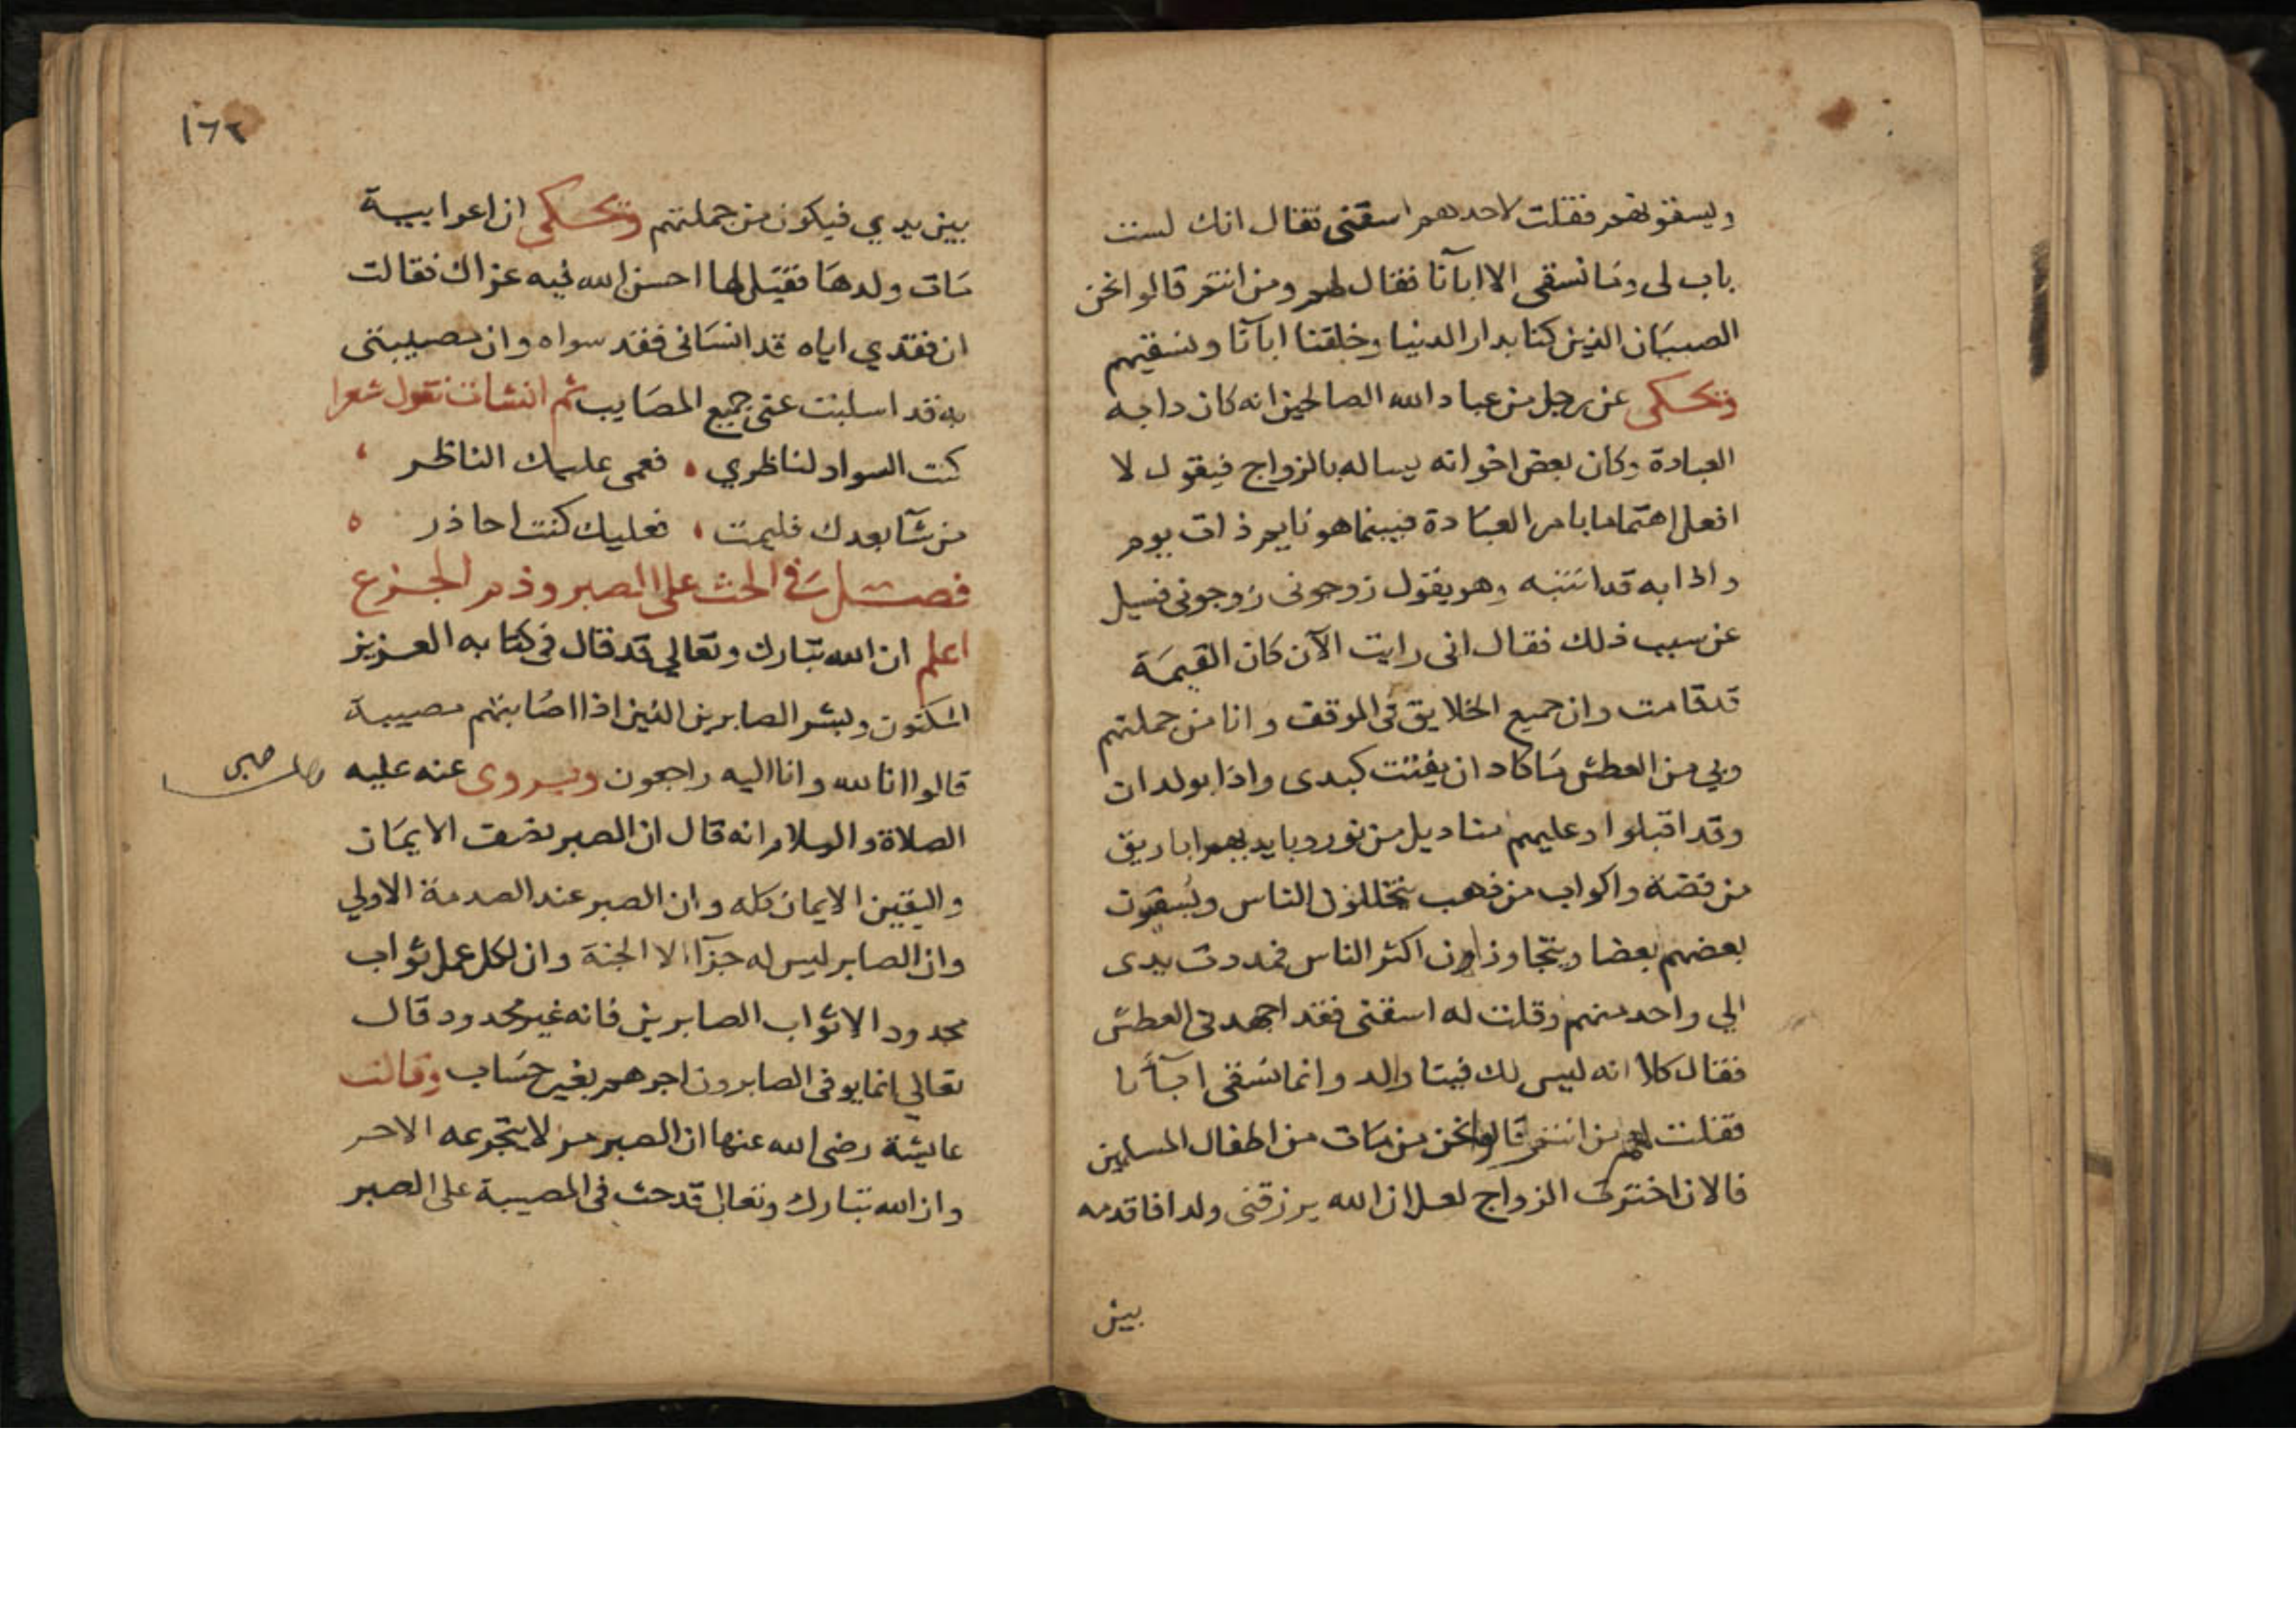 ويسقونهم فقلت لاحدهم اسقنى فقال انك لست
باب لى وما نسقى الا اباآنا فقال لهم ومن انتم قالوا نحن
الصبيان الذين كنا بدار الدنيا وخلفنا اباآنا ونسقيهم
وتحكى عن رجل من عباد الله الصالحين انه كان دابه
العبادة وكان بعض اخوانه يساله بالزواج فيقول لا
افعل اهتماما بامر العبادة فبينما هو نايم ذات يوم
واذا به قد انتبه وهو يقول زوجونى زوجونى فسيل
عن سبب ذلك فقال انى رايت الآن كان القيمة
قد قامت وان جميع الخلايق فى الموقف وانا من جملتهم
وبي من العطش ما كاد ان يفتت كبدى واذا بولدان
وقد اقبلوا وعليهم مناديل من نور وبايديهم اباريق
من فضة واكواب من ذهب يتخللون الناس ويسقون
بعضهم بعضا ويتجاوزون اكثر الناس فمددت يدى
الي واحد منهم وقلت له اسقنى فقد اجهدنى العطش
فقال كلا انه ليس لك فينا والد وانما نسقى اباآنا
فقلت لهم من انتم قالوا نحن من مات من اطفال المسلمين
فالان اخترت الزواج لعل ان الله يرزقنى ولدا فاقدمه
بين
١٦٢
بين يدي فيكون من جملتهم وتحكى ان اعرابيية
مات ولدها فقيل لها احسن الله فيه عزاك فقالت
ان فقدي اياه قد انسانى فقد سواه وان مصيبتى
به قد اسلبت عنى جميع المصايب ثم انشات تقول شعرا
كنت السواد لناظري فعمى عليك الناظر
من شآ بعدك فليمت فعليك كنت احاذر
فصل فى الحث على الصبر وذم الجزع
اعلم ان الله تبارك وتعالي قد قال فى كتابه العزيز
المكنون وبشر الصابرين الذين اذا اصابتهم مصيبة
قالوا انا لله وانا اليه راجعون ويروى عنه عليه
الصلاة والسلام انه قال ان الصبر نصف الايمان
واليقين الايمان كله وان الصبر عند الصدمة الاولي
وان الصابر ليس له جزآ الا الجنة وان لكل عمل ثواب
محدود الا ثواب الصابرين فانه غير محدود قال
تعالي انما يوفى الصابرون اجرهم بغير حساب وقالت
عايشة رضى الله عنها ان الصبر مر لا يتجرعه الا حر
وان الله تبارك وتعالى قد حث فى المصيبة على الصبر